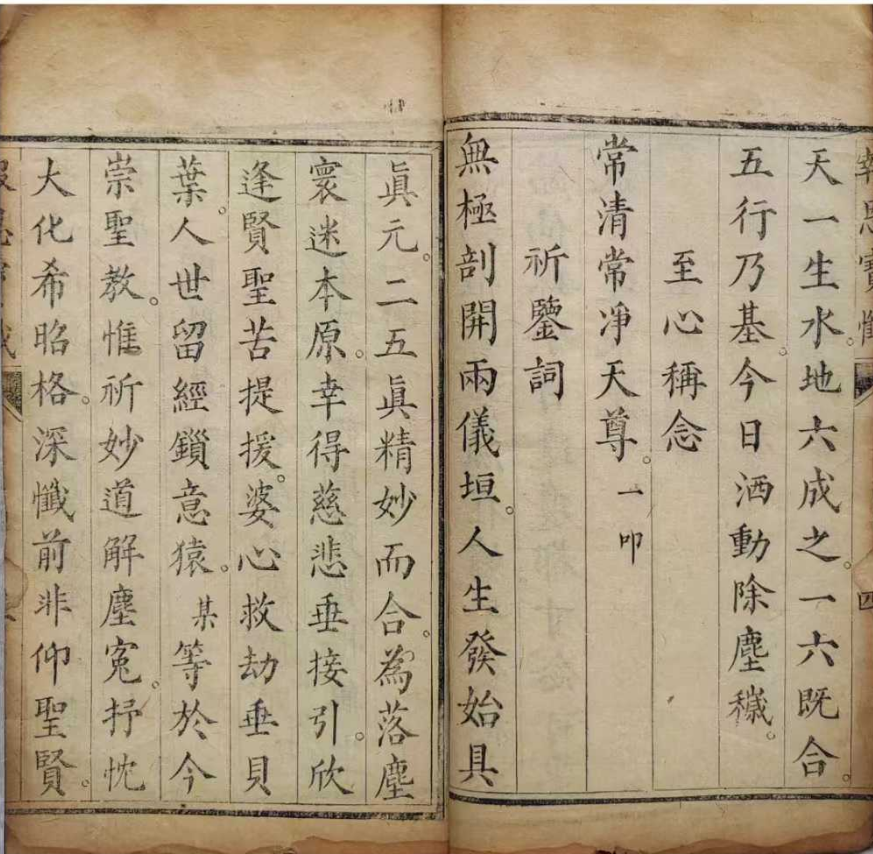 報恩寶懺
四
天一生水。地六成之。一六既合。
五行乃基。今日洒動除塵穢。
至心稱念
常清常净天尊。一叩
祈鑒詞
無極剖開兩儀垣。人生發始具
眞元。二五眞精妙而合。為落塵
寰迷本原。幸得慈悲垂接引。欣
逢賢聖苦提援。婆心救劫垂貝
葉。人世留經鎖意猿。某等於今
崇聖教。惟祈妙道解塵寃。抒忱
大化希昭格。深懺前非仰聖賢。